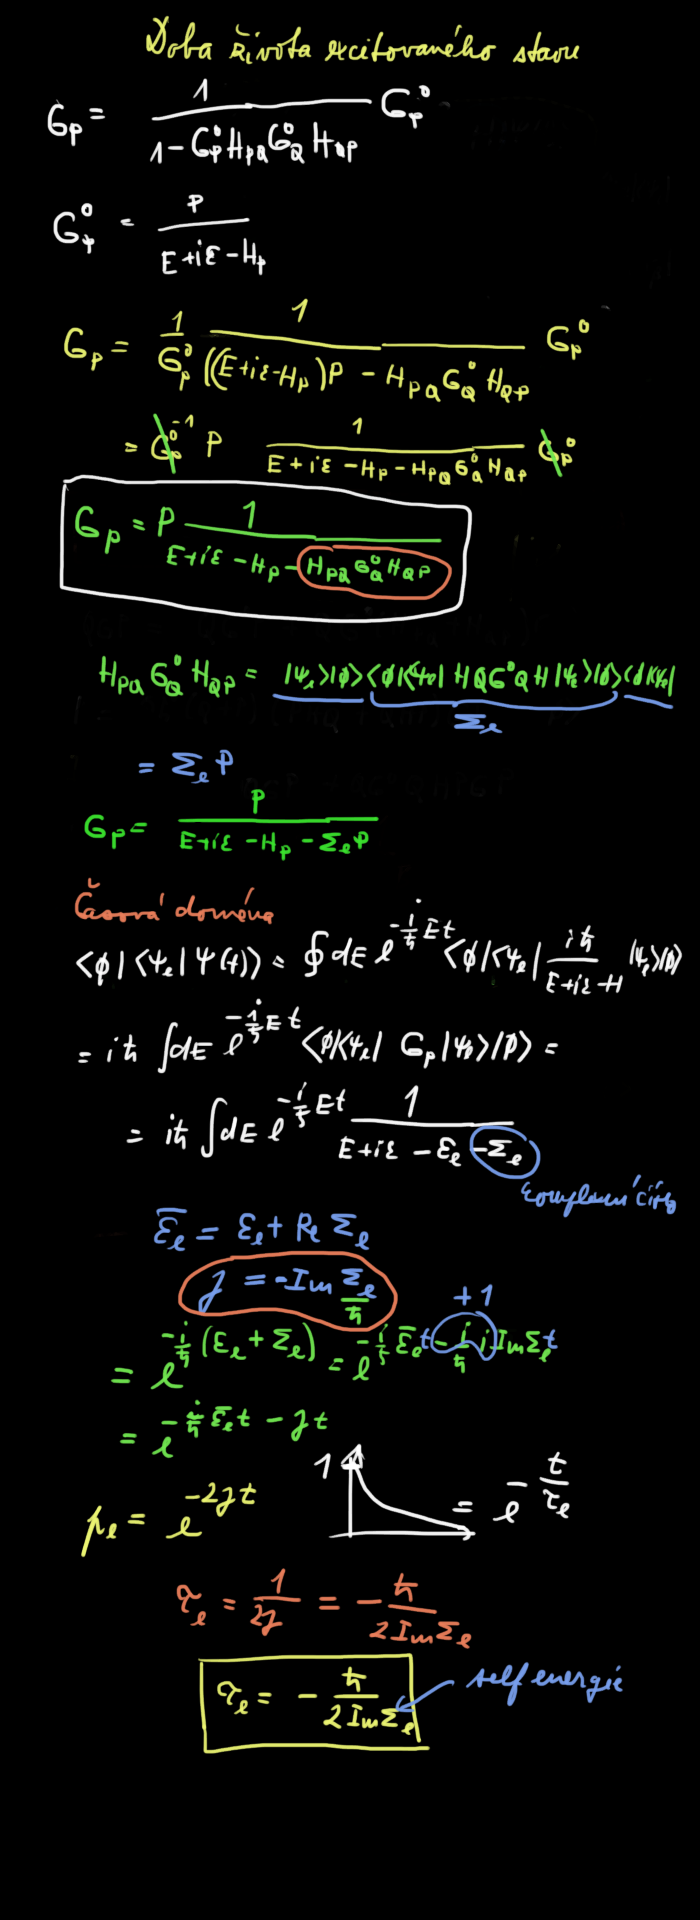 Doba života excitovaného stavu
G_P = 1 / (1 - G_P^0 H_PQ G_Q^0 H_QP) G_P^0
G_P^0 = P / (E + iε - H_P)
G_P = 1/G_P^0 1 / ((E + iε - H_P)P - H_PQ G_Q^0 H_QP) G_P^0
= G_P^0^-1 P 1 / (E + iε - H_P - H_PQ G_Q^0 H_QP) G_P^0
G_P = P 1 / (E + iε - H_P - H_PQ G_Q^0 H_QP)
H_PQ G_Q^0 H_QP = |ψ_e>|ϕ><ϕ|<ψ_e| H Q G^0 Q H |ψ_e>|ϕ><ϕ|<ψ_e|
Σ_e
= Σ_e P
G_P = P / (E + iε - H_P - Σ_e P)
Časová doména
<ϕ|<ψ_e|ψ(t)> = ∮ dE e^{-i/ħ Et} <ϕ|<ψ_e| iħ / (E + iε - H) |ψ_e>|ϕ>
= iħ ∫ dE e^{-i/ħ Et} <ϕ|<ψ_e| G_P |ψ_e>|ϕ> =
= iħ ∫ dE e^{-i/ħ Et} 1 / (E + iε - ε_e - Σ_e)
ε̄_e = ε_e + Re Σ_e
γ = -Im Σ_e / ħ
+1
= e^{-i/ħ (ε_e + Σ_e)} = e^{-i/ħ ε̄_e t - i/ħ i Im Σ_e t}
= e^{-i/ħ ε̄_e t - γt}
p_e = e^{-2γt} 1 = e^{-t/τ_e}
τ_e = 1/2γ = - ħ / (2 Im Σ_e)
τ_e = - ħ / (2 Im Σ_e) self energie